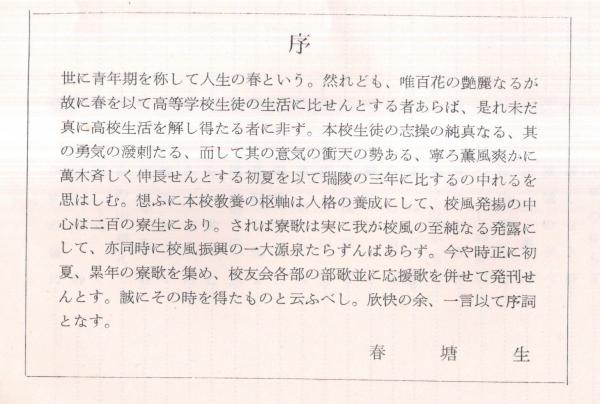 序
世に青年期を称して人生の春という。然れども、唯百花の艶麗なるが
故に春を以て高等学校生徒の生活に比せんとする者あらば、是れ未だ
真に高校生活を解し得たる者に非ず。本校生徒の志操の純真なる、其
の勇気の溌剌たる、而して其の意気の衝天の勢ある、寧ろ薫風爽かに
萬木斉しく伸長せんとする初夏を以て瑞陵の三年に比するの中れるを
思はしむ。想ふに本校教養の枢軸は人格の養成にして、校風発揚の中
心は二百の寮生にあり。されば寮歌は実に我が校風の至純なる発露に
して、亦同時に校風振興の一大源泉たらずんばあらず。今や時正に初
夏、累年の寮歌を集め、校友会各部の部歌並に応援歌を併せて発刊せ
んとす。誠にその時を得たものと云ふべし。欣快の余、一言以て序詞
となす。
春塘生